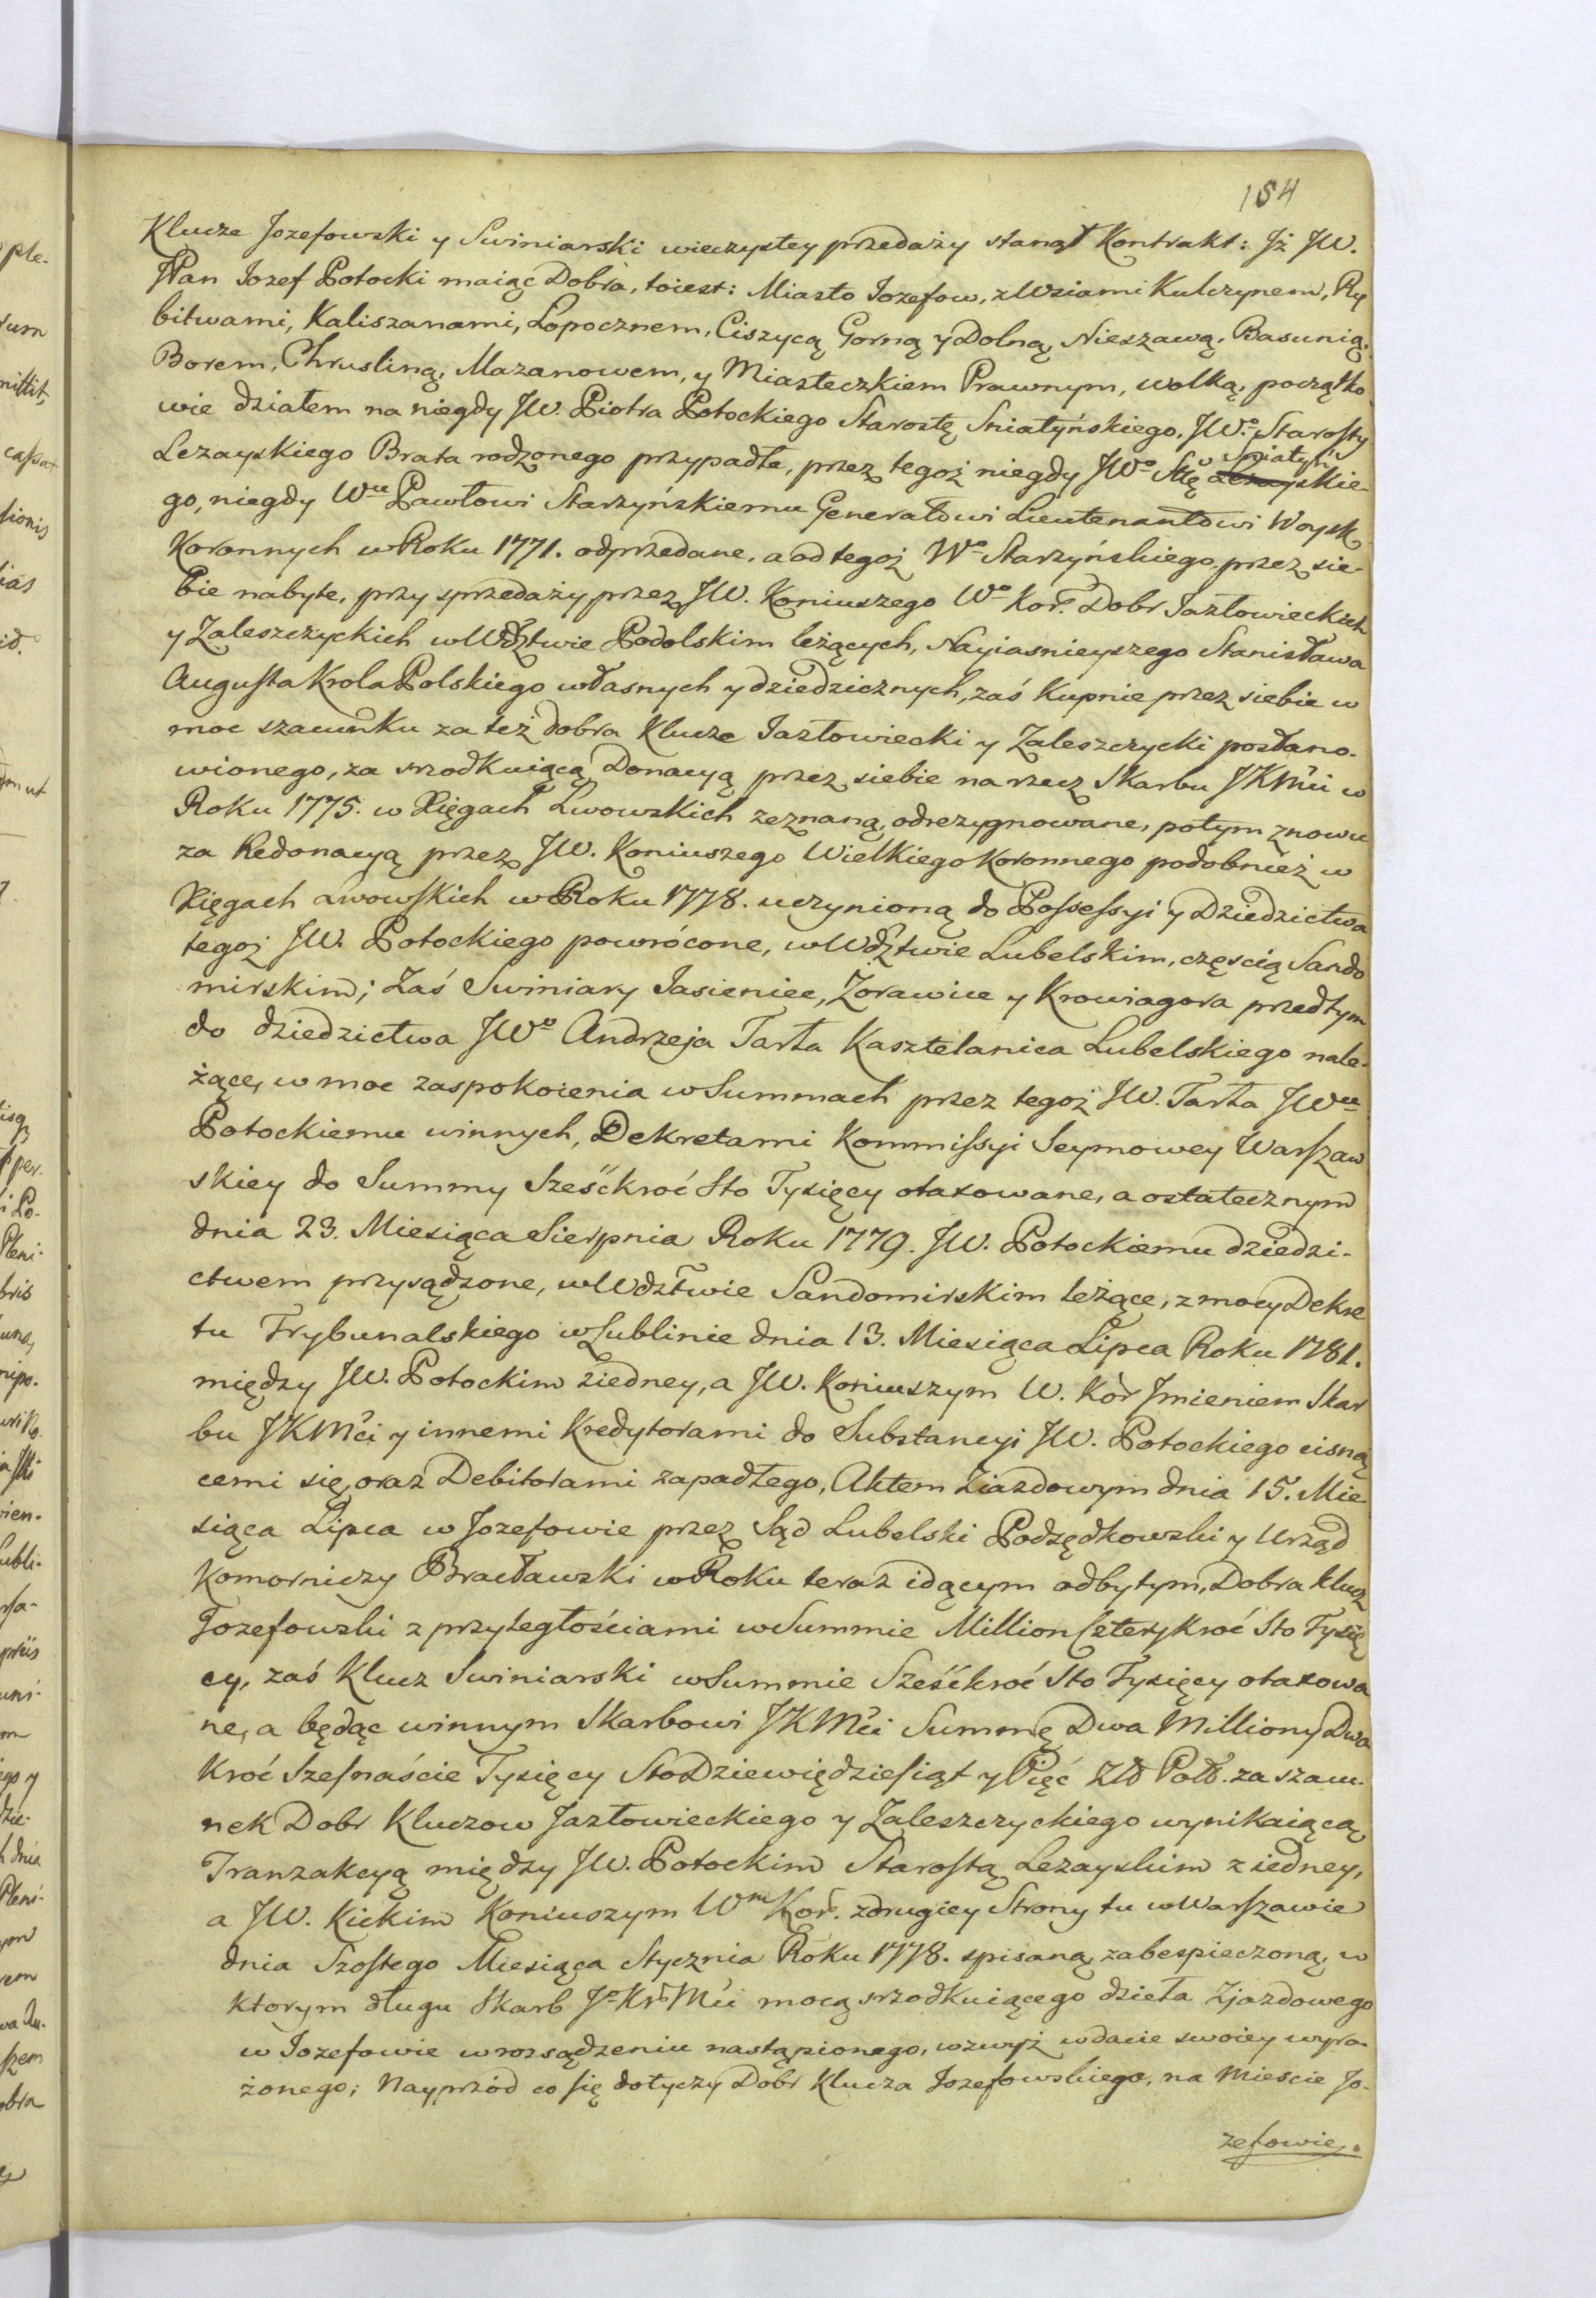 154
Klucze Jozefowski y Swiniarski wieczystey przedaży stanął Kontrakt: Jż JW.
JPan Jozef Potocki maiąc Dobra, toiest: Miasto Jozefow, z Wsiami Kulczynem, Ry
bitwami, Kaliszanami, Łopocznem, Ciszycą Gorną y Dolną, Nieszawą, Basunią,
Borem, Chrusliną, Mazanowem, y Miasteczkiem Prawnym, wolką, początko
wie działem na niegdy JW. Piotra Potockiego Starostę Sniatyńskiego, JWo. Starosty
Lezayskiego Brata rodzonego przypadłe, przez tegoż niegdy JWo Sttę Sniatyń skie-
go, niegdy Wu Pawłowi Starzyńskiemu Generałowi Lieutenantowi Woysk
Koronnych w Roku 1771. odprzedane, a od tegoż Wo Starzyńskiego przez sie-
bie nabyte, przy sprzedaży przez JW. Koniuszego Wo Kor. Dobr Jazłowieckich
y Zaleszczyckich w Wdztwie Podolskim leżących, Nayiasnieyszego Stanisława
Augusta Krola Polskiego własnych y dziedzicznych, zaś Kupnie przez siebie w
moc szacunku za też dobra Klucze Jazłowiecki y Zaleszczycki postano-
wionego, za srzodkuiącą Donacyą przez siebie na rzecz Skarbu JKMci w
Roku 1775. w Xięgach Lwowskich zeznaną, odrezygnowane, potym znowu
za Redonacyą przez JW. Koniuszego Wielkiego Koronnego podobnież w
Xięgach Lwowskich w Roku 1778. uczynioną do Possessyi y Dziedzictwa
tegoż JW. Potockiego powrócone, w Wdztwie Lubelskim, częścią Sando
mirskim; Zaś Swiniary Jasieniec, Zorawice y Krowiagora przedtym
do dziedzictwa JWo Andrzeja Tarła Kasztelanica Lubelskiego nale-
żące, w moc zaspokoienia w Summach przez tegoż JW. Tarła JWu
Potockiemu winnych, Dekretami Kommissyi Seymowey Warszaw
skiey do Summy Sześćkroć Sto Tysięcy otaxowane, a ostatecznym
dnia 23. Miesiąca Sierpnia Roku 1779. JW. Potockiemu dziedzi-
ctwem przysądzone, w Wdztwie Sandomirskim leżące, z mocy Dekre
tu Trybunalskiego w Lublinie dnia 13. Miesiąca Lipca Roku 1781.
między JW. Potockim ziedney, a JW. Koniuszym W. Kor Jmieniem Skar
bu JKMci y innemi Kredytorami do Substancyi JW. Potockiego cisną
cemi się, oraz Debitorami zapadłego, Aktem Ziazdowym dnia 15. Mie-
siąca Lipca w Jozefowie przez Sąd Lubelski Podsędkowski y Urząd
Komorniczy Bracławski w Roku teraz idącym odbytym, Dobra klucz
Jozefowski z przyległościami w Summie Million Czterykroć Sto Tysię
cy, zaś Klucz Swiniarski w Summie Sześćkroć Sto Tysięcy otaxowa
ne, a będąc winnym Skarbowi JKMci Summę Dwa Milliony Dwa
Kroć Szesnaście Tysięcy Sto Dziewiędziesiąt y Pięć Złł Poll. za szacu-
nek Dobr Kluczow Jazłowieckiego y Zaleszczyckiego wynikaiącą
Tranzakcyą między JW. Potockim Starostą Lezayskim z iedney,
a JW. Kickim Koniuszym Wm Kor. z drugiey Strony tu w Warszawie
dnia Szostego Miesiąca Stycznia Roku 1778. spisaną, zabespieczoną, w
ktorym długu Skarb Jo Kr Mci mocą srzodkuiącego dzieła Zjazdowego
w Jozefowie w rozsądzeniu nastąpionego, wzwyż w dacie swoiey wyra-
żonego; Nayprzód co się dotyczy Dobr Klucza Jozefowskiego, na Miescie Jo-
zefowie.